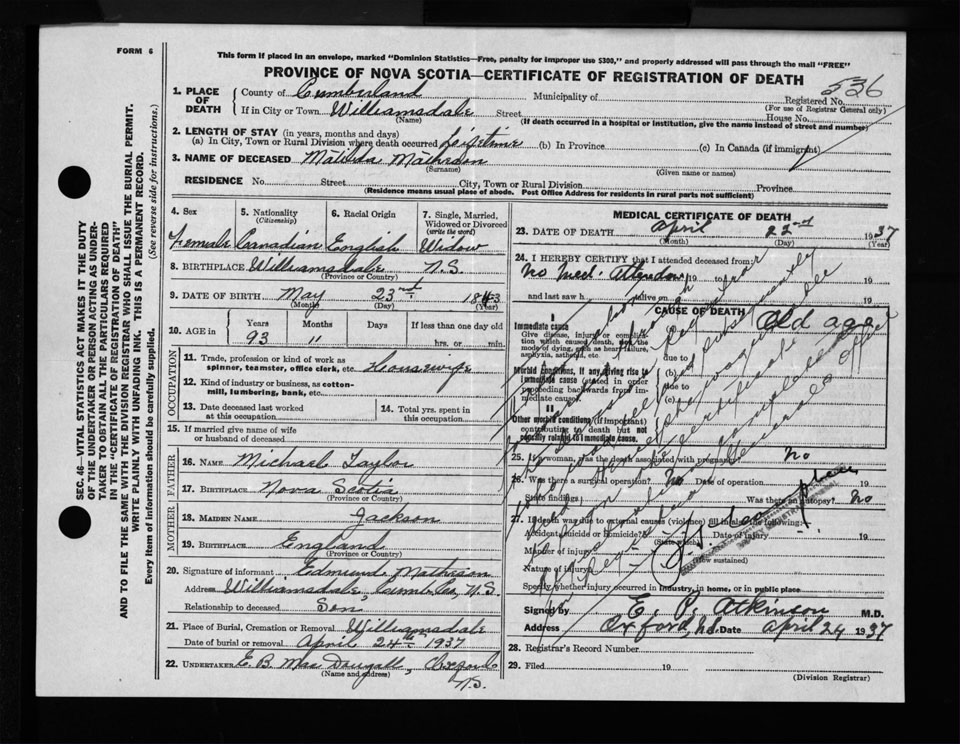 FORM 6
This form if placed in an envelope, marked "Dominion Statistics—Free, penalty for improper use $300," and properly addressed will pass through the mail "FREE"
PROVINCE OF NOVA SCOTIA—CERTIFICATE OF REGISTRATION OF DEATH
536
1. PLACE OF DEATH
County of Cumberland Municipality of Registered No.
(For use of Registrar General only)
If in City or Town Williamsdale Street House No.
(Name) (If death occurred in a hospital or institution, give the name instead of street and number)
2. LENGTH OF STAY (in years, months and days)
(a) In City, Town or Rural Division where death occurred Lifetime (b) In Province (c) In Canada (if immigrant)
3. NAME OF DECEASED Matilda Matheson
(Surname) (Given name or names)
RESIDENCE No. Street City, Town or Rural Division Province
(Residence means usual place of abode. Post Office Address for residents in rural parts not sufficient)
SEC. 46—VITAL STATISTICS ACT MAKES IT THE DUTY
OF THE UNDERTAKER OR PERSON ACTING AS UNDER-
TAKER TO OBTAIN ALL THE PARTICULARS REQUIRED
IN THE "CERTIFICATE OF REGISTRATION OF DEATH"
AND TO FILE THE SAME WITH THE DIVISION REGISTRAR WHO SHALL ISSUE THE BURIAL PERMIT.
WRITE PLAINLY WITH UNFADING INK. THIS IS A PERMANENT RECORD.
Every item of information should be carefully supplied. (See reverse side for instructions.)
4. Sex 5. Nationality (Citizenship) 6. Racial Origin 7. Single, Married, Widowed or Divorced (write the word)
Female Canadian English Widow
8. BIRTHPLACE Williamsdale N.S.
(Province or Country)
9. DATE OF BIRTH May 23rd 1843
(Month) (Day) (Year)
10. AGE in Years Months Days If less than one day old
93 11 hrs. or min.
OCCUPATION
11. Trade, profession or kind of work as
spinner, teamster, office clerk, etc. Housewife
12. Kind of industry or business, as cotton-
mill, lumbering, bank, etc.
13. Date deceased last worked
at this occupation
14. Total yrs. spent in
this occupation
15. If married give name of wife
or husband of deceased
FATHER
16. NAME Michael Taylor
17. BIRTHPLACE Nova Scotia
(Province or Country)
MOTHER
18. MAIDEN NAME Jackson
19. BIRTHPLACE England
(Province or Country)
20. Signature of informant Edmund Matheson
Address Williamsdale, Cumb Co, N.S.
Relationship to deceased Son
21. Place of Burial, Cremation or Removal Williamsdale
Date of burial or removal April 24th 1937
22. UNDERTAKER E. B. MacDougall, Oxford
(Name and address) N.S.
MEDICAL CERTIFICATE OF DEATH
23. DATE OF DEATH April 22nd 1937
(Month) (Day) (Year)
24. I HEREBY CERTIFY that I attended deceased from:
No Med. Attendance 19 19
and last saw h alive on 19
CAUSE OF DEATH
I
Immediate cause Old age
Give disease, injury or complication which caused death, not the mode of dying, such as heart failure, asphyxia, asthenia, etc.
due to
(b)
Morbid conditions, if any, giving rise to immediate cause (stated in order proceeding backwards from immediate cause)
due to
(c)
II
Other morbid conditions (if important) contributing to death but not causally related to immediate cause.
25. If a woman, was the death associated with pregnancy? No
26. Was there a surgical operation? No Date of operation 19
State findings Was there an autopsy? No
27. If death was due to external causes (violence) fill in also the following:
Accident, suicide or homicide? Date of injury 19
(State which)
Manner of injury
(How sustained)
Nature of injury
Specify whether injury occurred in industry, in home, or in public place
Signed by E. P. Atkinson M.D.
Address Oxford, N.S. Date April 24 1937
28. Registrar's Record Number
29. Filed 19
(Division Registrar)